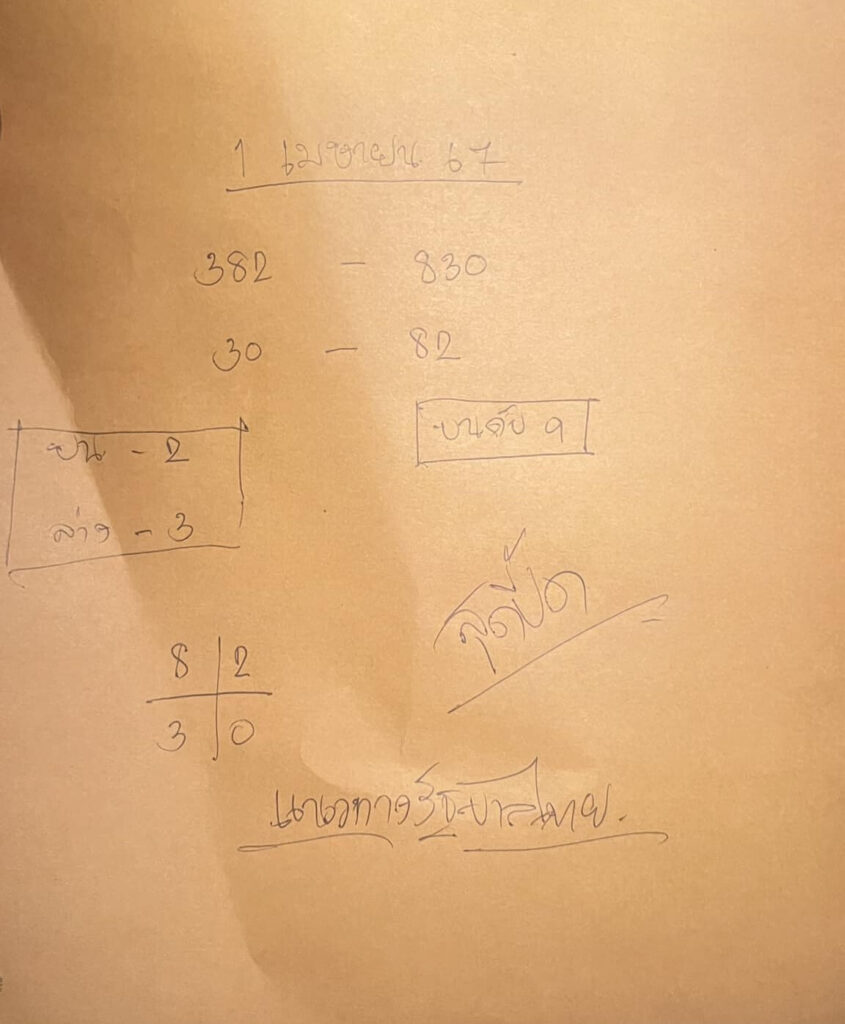 1 เมษายน 67
382 - 830
30 - 82
บน - 2
ล่าง - 3
บนดับ 9
สุดปี๊ด
8 2
3 0
แนวทางรัฐบาลไทย.